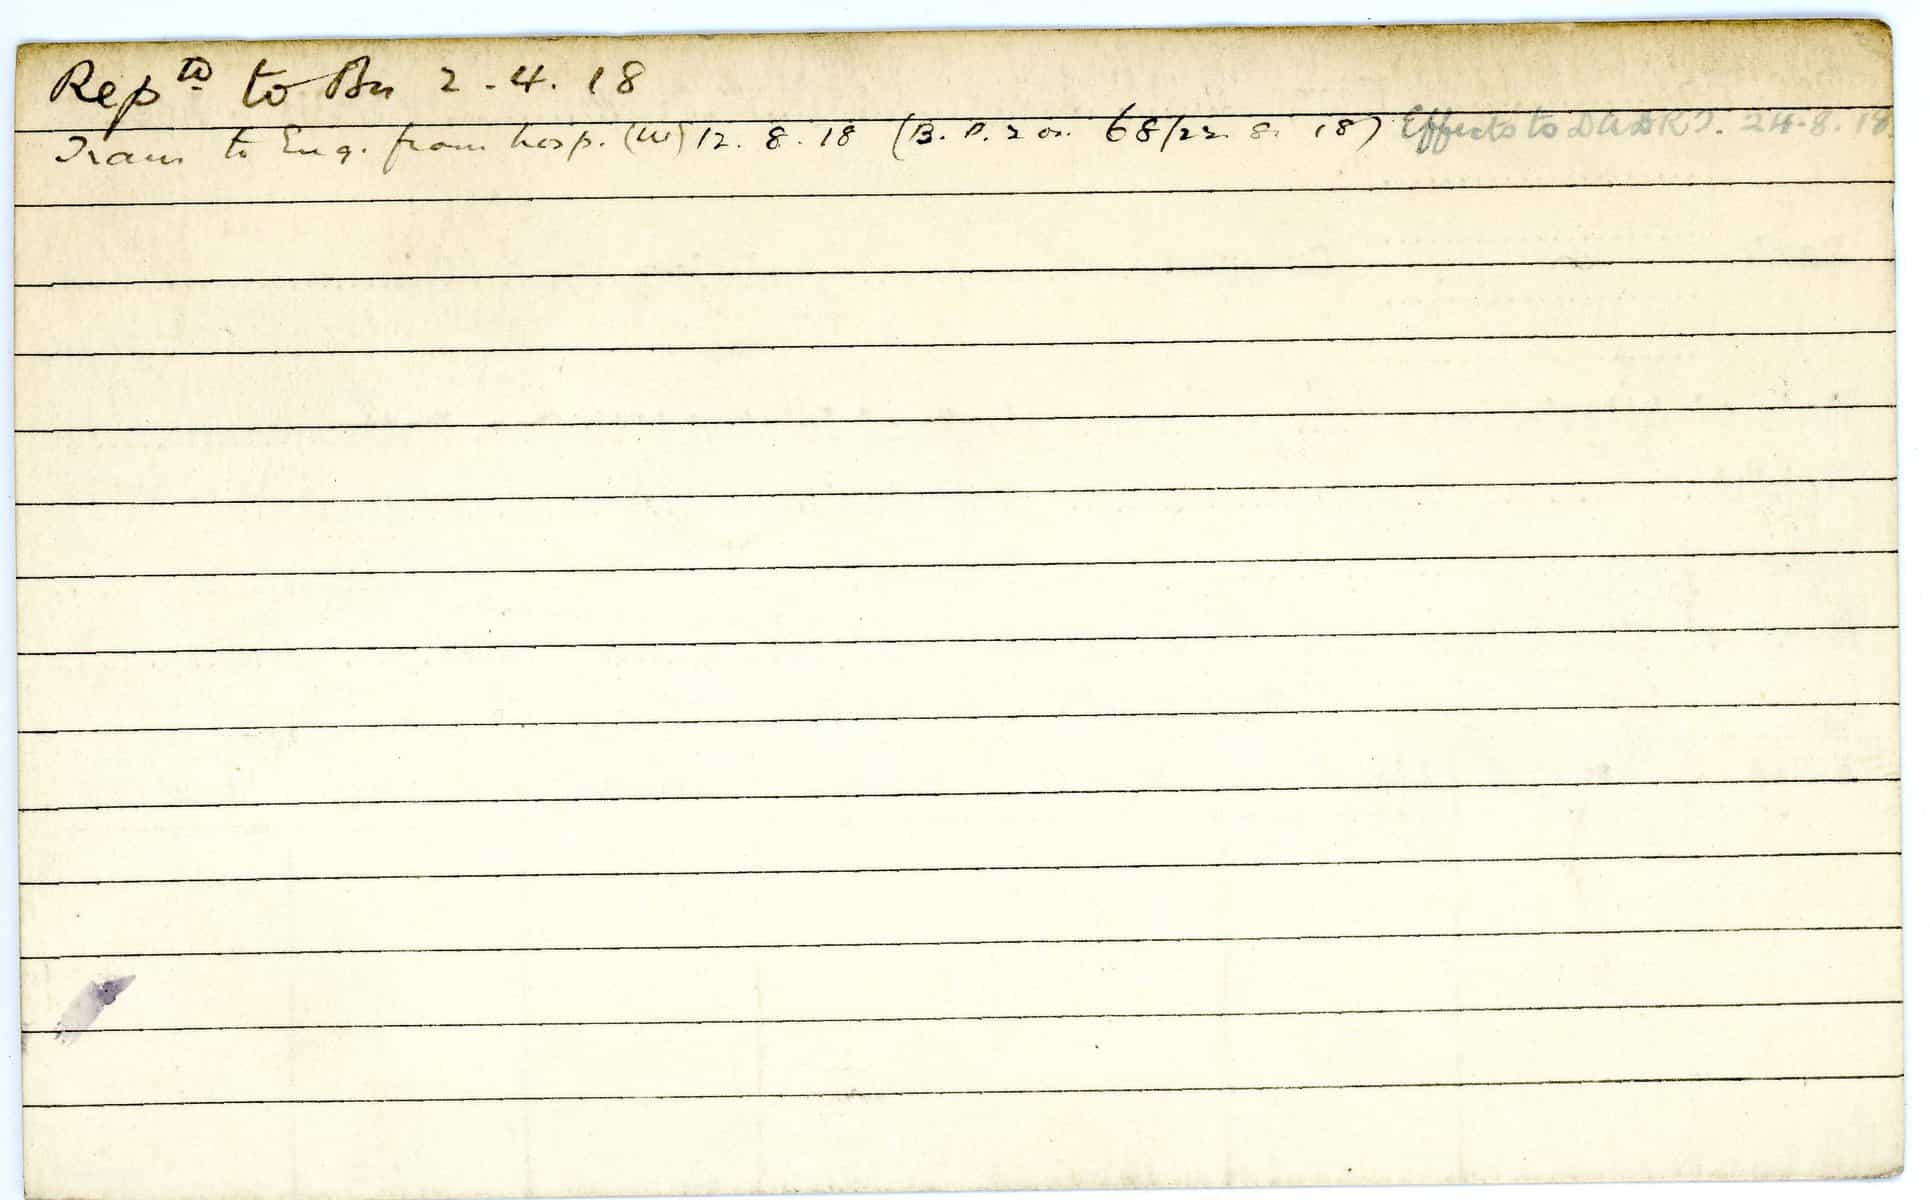 Rep^td to Bn 2-4.18
Trans to Eng. from hosp. (W) 12.8.18 (B.P. 2 or. 68/22.8.18) Effects to DADRT. 24-8.18.